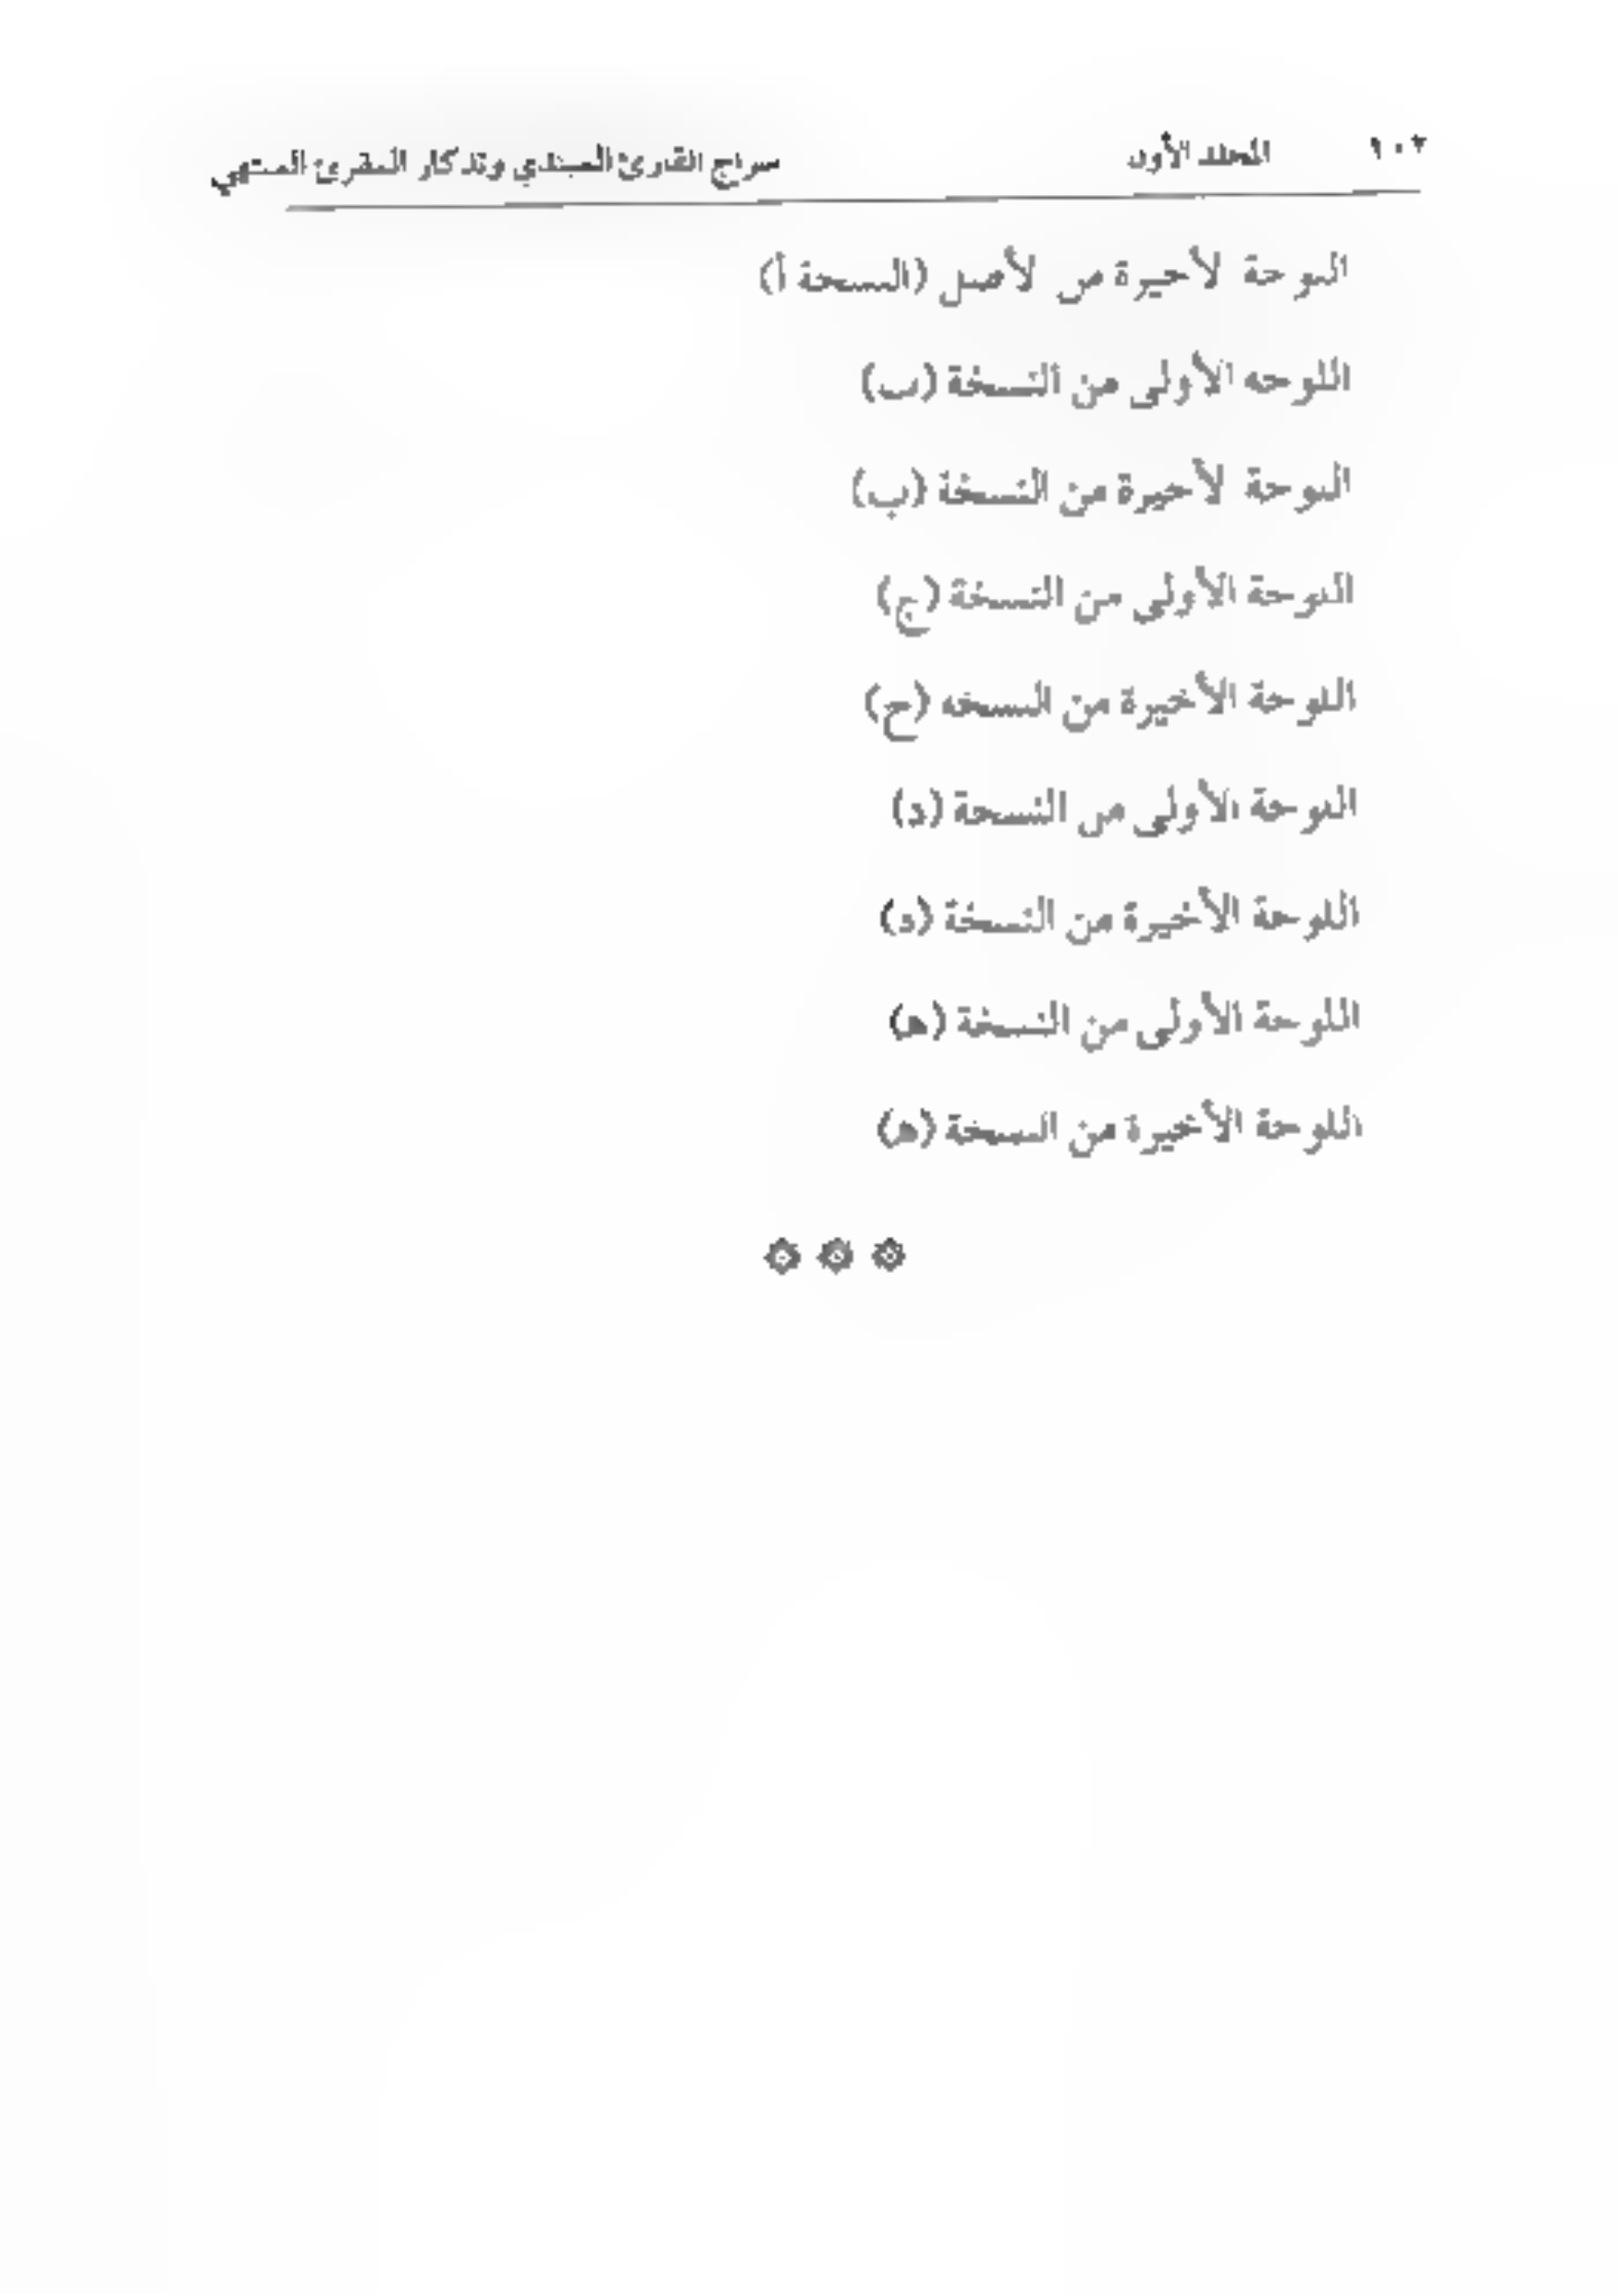 ١٠٢ المجلد الأول سراج القارئ المبتدي وتذكار المقرئ المنتهي
اللوحة الأخيرة من الأصل (النسخة أ)
اللوحة الأولى من النسخة (ب)
اللوحة الأخيرة من النسخة (ب)
اللوحة الأولى من النسخة (ج)
اللوحة الأخيرة من النسخة (ج)
اللوحة الأولى من النسخة (د)
اللوحة الأخيرة من النسخة (د)
اللوحة الأولى من النسخة (هـ)
اللوحة الأخيرة من النسخة (هـ)